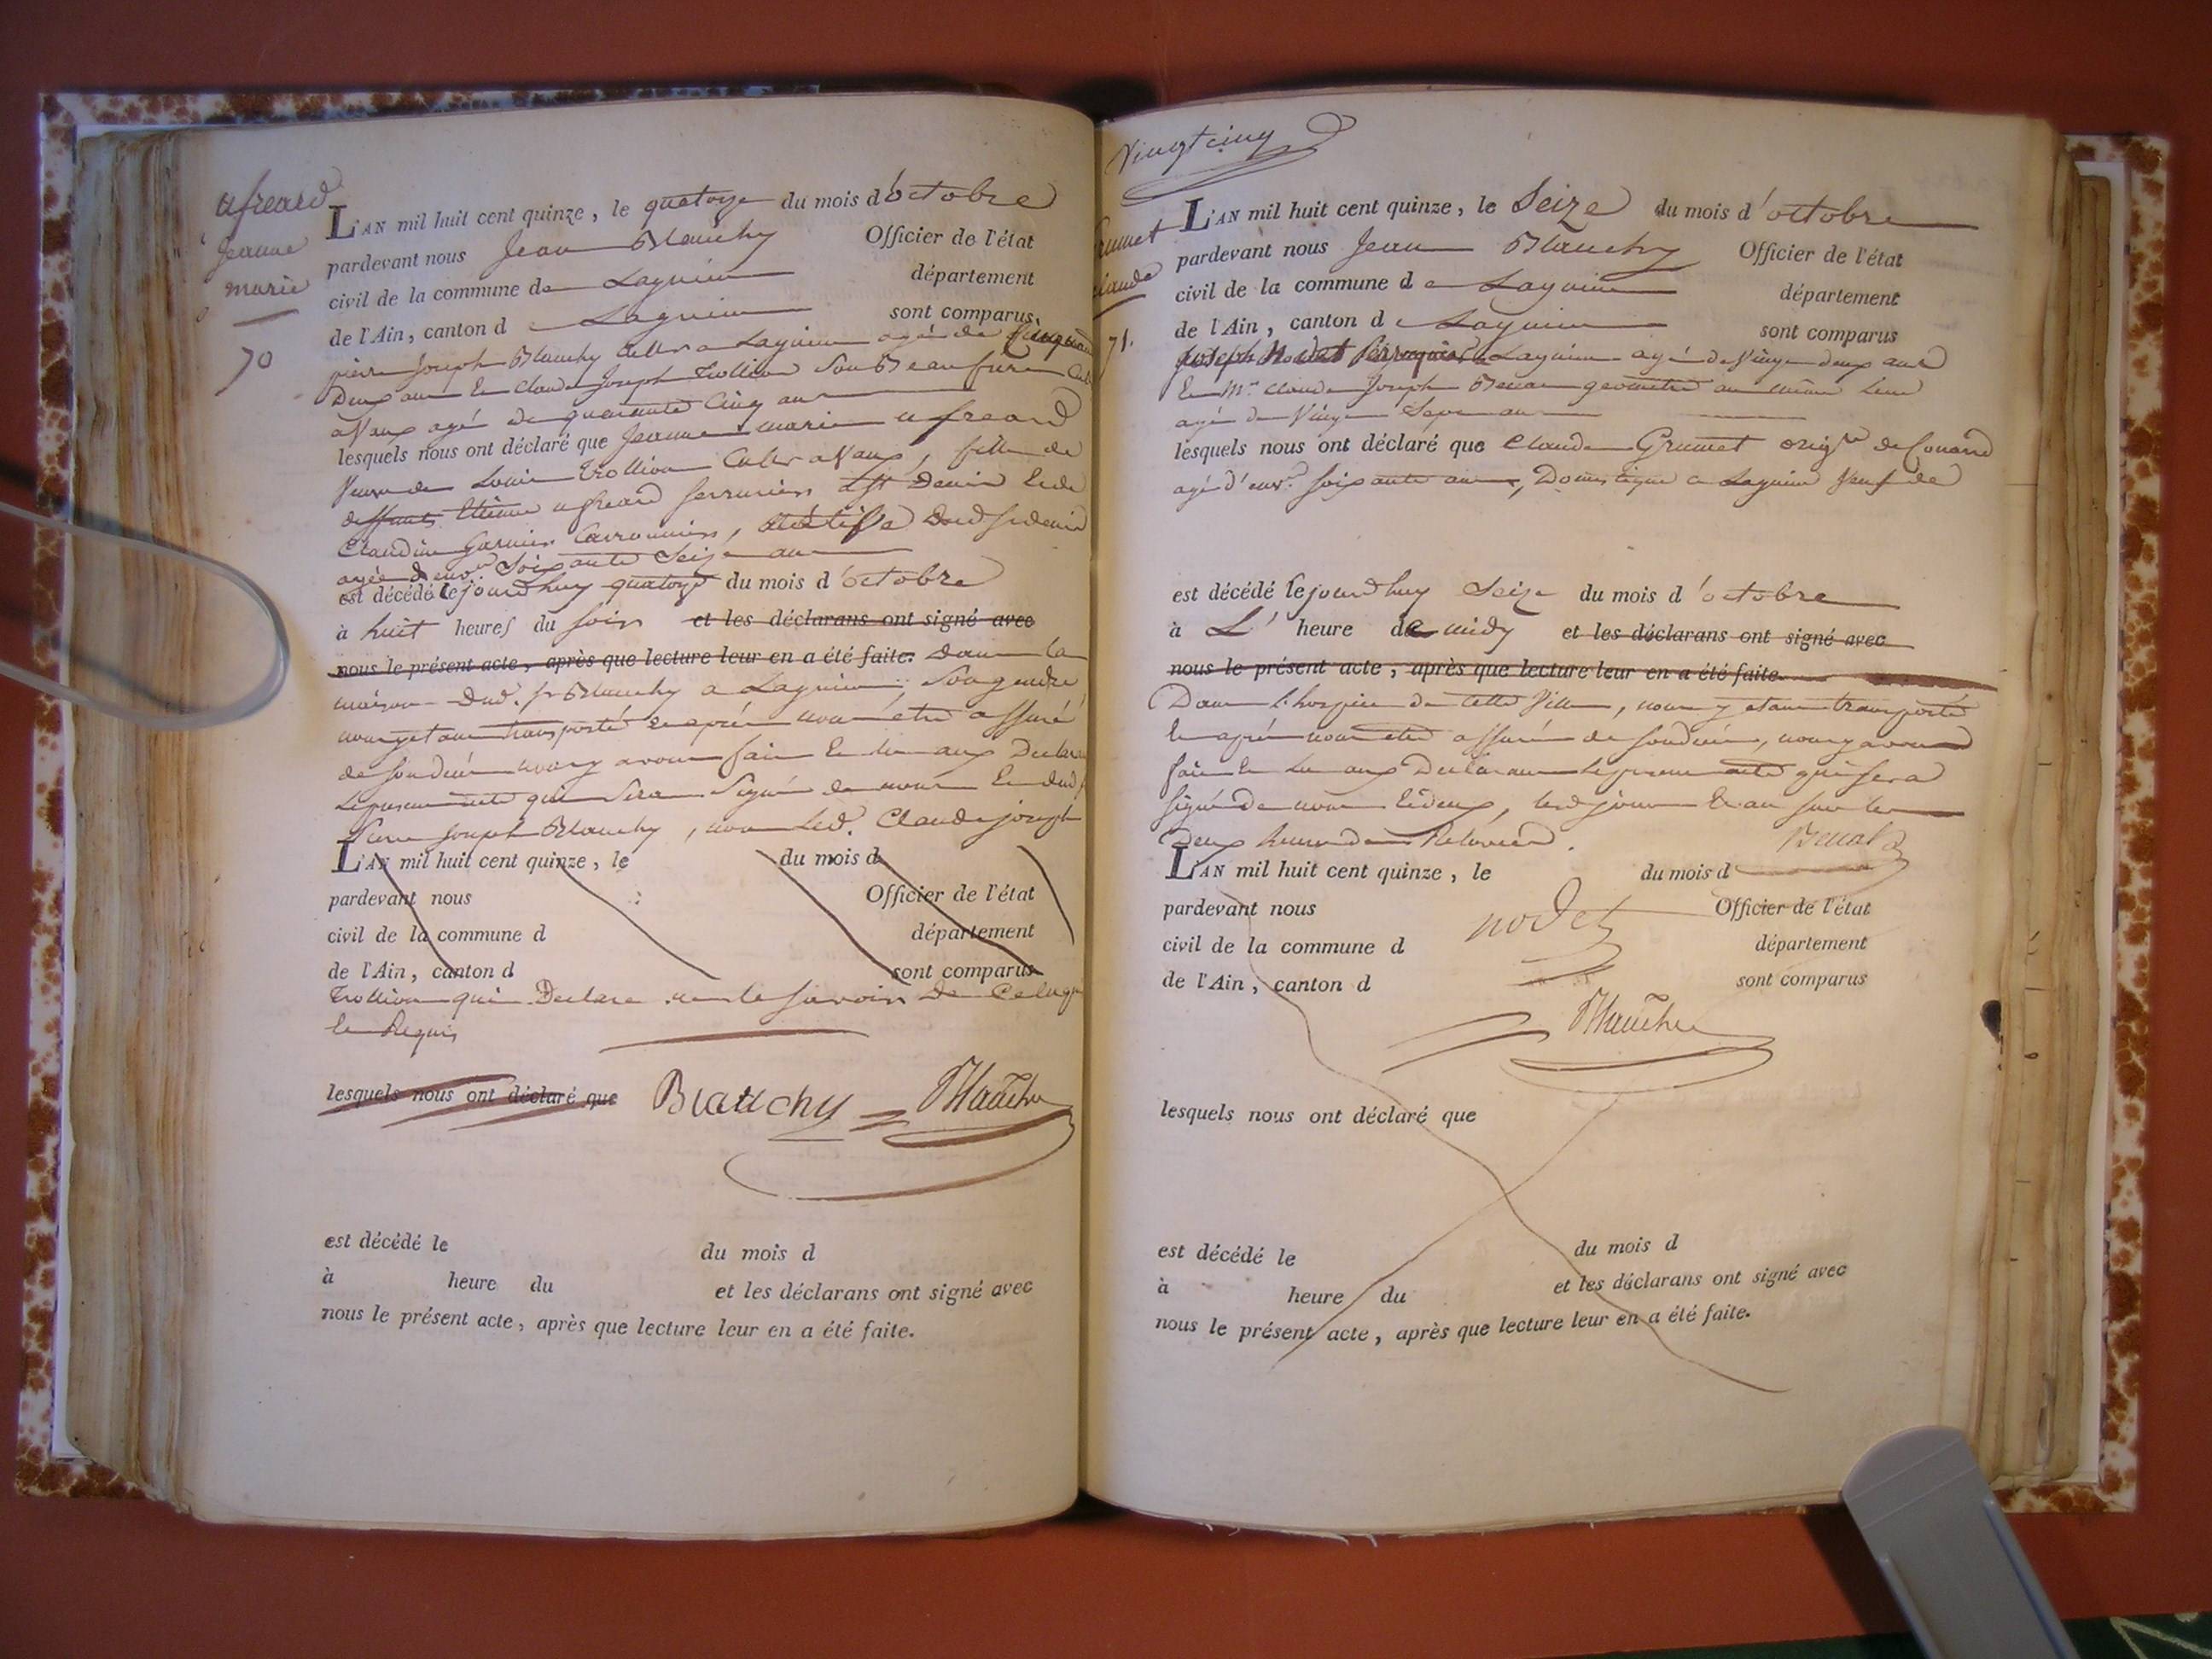 ufreard
Jeanne
marie
70
L'AN mil huit cent quinze, le quatorze du mois d'octobre
pardevant nous Jean Blanchy Officier de l'état
civil de la commune de Lagnieu département
de l'Ain, canton de Lagnieu sont comparus
pierre Joseph Blanchy cultr a Lagnieu agé de Cinquante
Deux ans Et Claude Joseph Trollion Son Beaufrere Cult
a Vaux agé de quarante Cinq ans
lesquels nous ont déclaré que Jeanne marie ufreard
Veuve de Louis trollion Cultr a Vaux, fille de
deffunts Etienne ufreard serrurier a St Denis Et de
Claudine Garnier, native dud St denis
agée d'envn. Soixante Seize ans
est décédé le jourdhuy quatorze du mois d'octobre
à huit heures du soir et les déclarans ont signé avec
nous le présent acte, après que lecture leur en a été faite. Dans la
maison Dud. sr Blanchy a Lagnieu, Son gendre
nous y etant transporté et après nous être assuré
de son decès nous y avons fait Et lu aux Declarans
Le present acte qui Sera Signé de nous Et dud
Pierre Joseph Blanchy, non led. Claude joseph
L'AN mil huit cent quinze, le du mois d
pardevant nous Officier de l'état
civil de la commune d département
de l'Ain, canton d sont comparus
Trollion qui a Declaré ne le savoir De Ce
Et Requis
lesquels nous ont déclaré que Blauchy Blanchy
est décédé le du mois d
à heure du et les déclarans ont signé avec
nous le présent acte, après que lecture leur en a été faite.
Vingt cinq
Grumet
Claude
71.
L'AN mil huit cent quinze, le Seize du mois d'octobre
pardevant nous Jean Blanchy Officier de l'état
civil de la commune de Lagnieu département
de l'Ain, canton de Lagnieu sont comparus
Joseph Nodet Perruquier a Lagnieu agé de Vingt deux ans
Et Mr. Claude Joseph Benat geometre au même Lieu
agé de Vingt Sept ans
lesquels nous ont déclaré que Claude Grumet origre de Conand
agé d'envn. soixante ans, Domestique a Lagnieu Veuf de
est décédé le jourdhuy Seize du mois d'octobre
à L' heure de midy et les déclarans ont signé avec
nous le présent acte, après que lecture leur en a été faite
Dans L'hospice de cette Ville, nous y etant transporté
Et après nous etre assuré de son decès, nous y avons
fait Et Lu aux Declarans Le present acte qui sera
signé de nous Et d'eux, led jour Et an sur les
Deux heures de Relevée.
Benat
L'AN mil huit cent quinze, le du mois d
pardevant nous nodet Officier de l'état
civil de la commune d département
de l'Ain, canton d sont comparus
Blanchy
lesquels nous ont déclaré que
est décédé le du mois d
à heure du et les déclarans ont signé avec
nous le présent acte, après que lecture leur en a été faite.